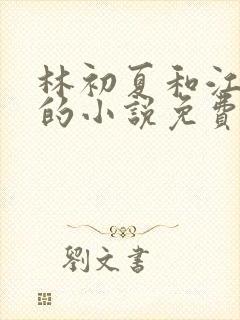 林初夏和江
的小說免費
劉文書